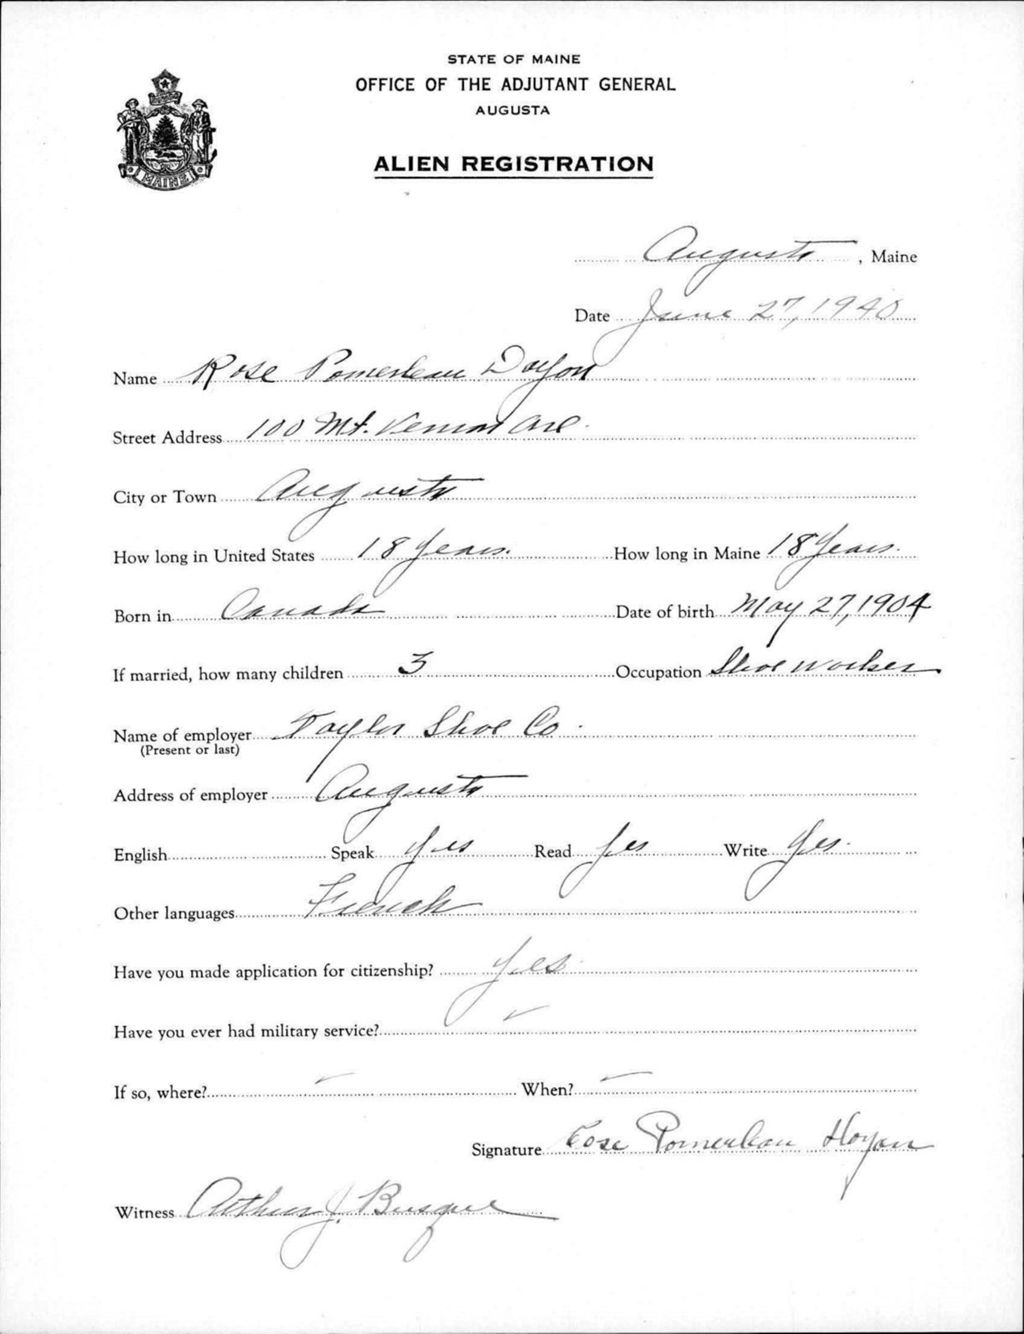 STATE OF MAINE
OFFICE OF THE ADJUTANT GENERAL
AUGUSTA
ALIEN REGISTRATION
MAINE
Augusta, Maine
Date June 27, 1940
Name Rose Pomerleau Doyon
Street Address 100 Mt. Vernon Ave.
City or Town Augusta
How long in United States 18 Years. How long in Maine 18 Years.
Born in Canada Date of birth May 27, 1904
If married, how many children 3 Occupation Shoe worker
Name of employer Taylor Shoe Co.
(Present or last)
Address of employer Augusta
English Speak Yes Read Yes Write Yes.
Other languages French
Have you made application for citizenship? Yes
Have you ever had military service? -
If so, where? - When? -
Signature Rose Pomerleau Doyon
Witness Arthur J. Busque